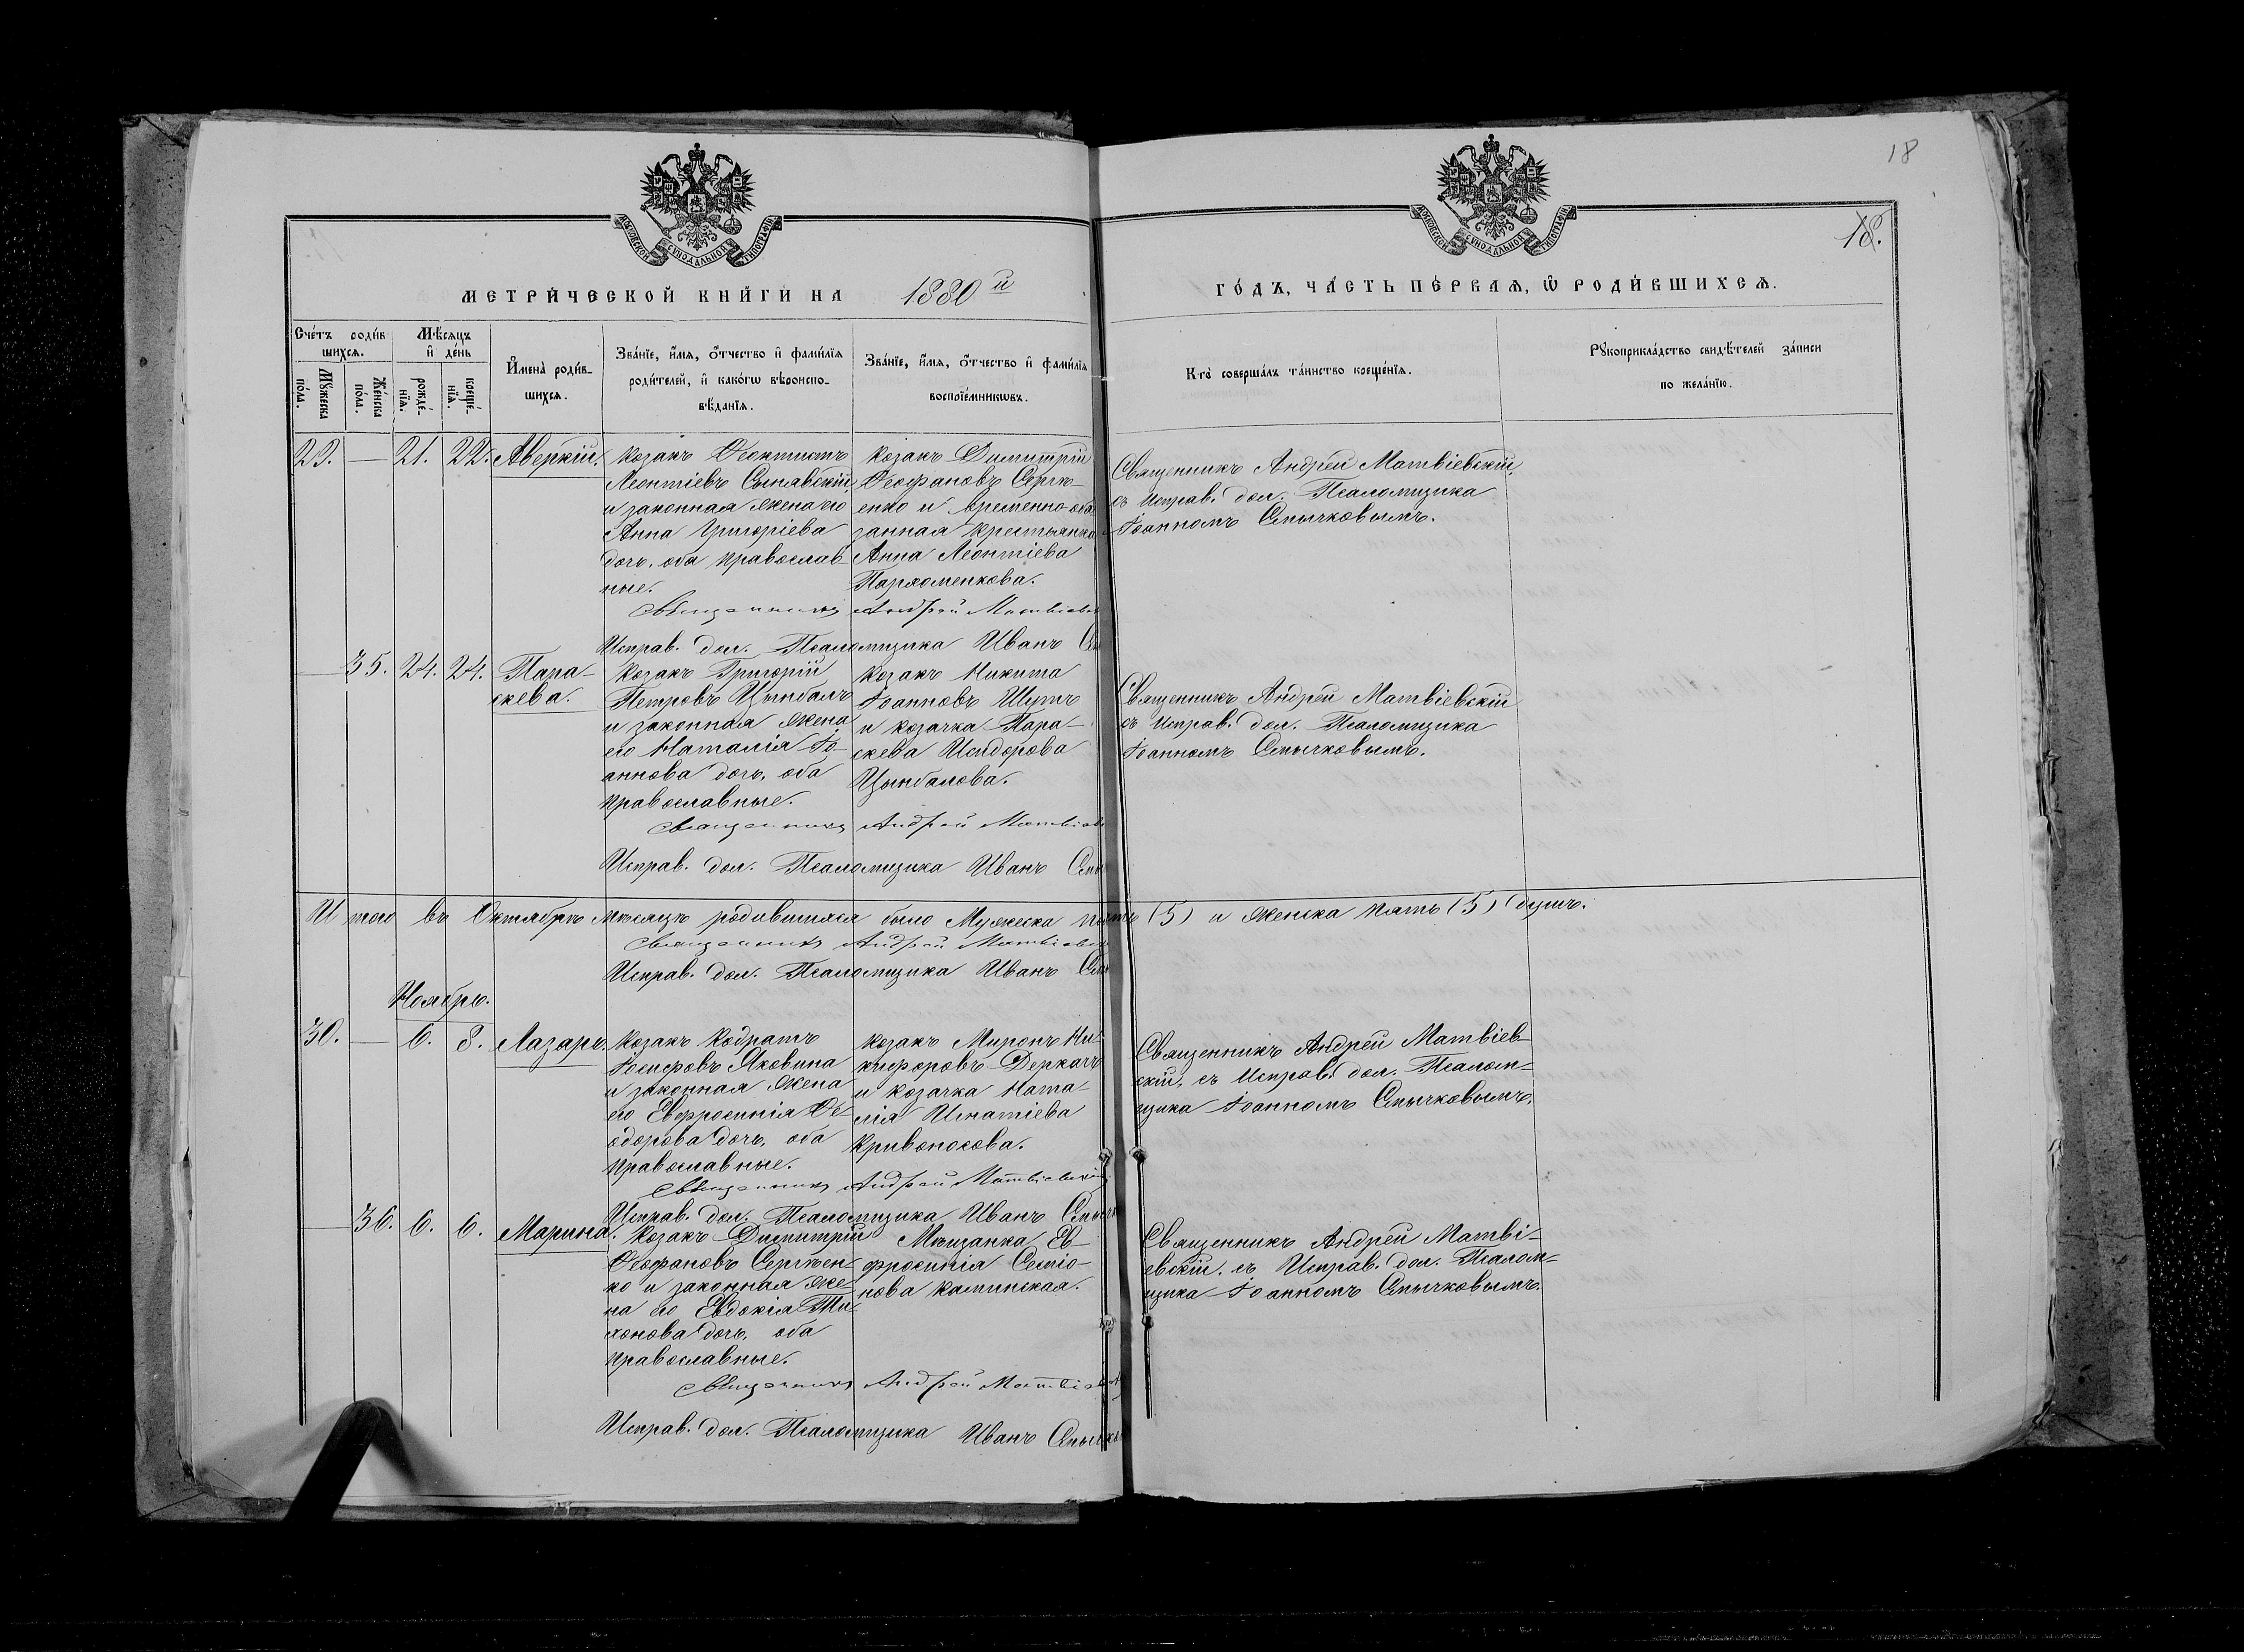 18
18.
МОСКОВСКОЙ СѴНОДАЛЬНОЙ ТИПОГРАФІИ
МОСКОВСКОЙ СѴНОДАЛЬНОЙ ТИПОГРАФІИ
МЕТРИ́ЧЕСКОЙ КНИ́ГИ НА 1880й
ГО́ДЪ, ЧА́СТЬ ПЕ́РВАѦ, Ѽ РОДИ́ВШИХСѦ.
Сче́тъ роди́в
шихсѧ.
Мѣ́сѧцъ
и҆ де́нь
Мꙋ́жеска
по́ла.
Же́нска
по́ла.
рожде́
нїѧ.
креще́
нїѧ.
И҆мена̀ роди́в-
шихсѧ.
Зва́нїе, и҆́мѧ, ѻ҆́тчество и҆ фами́лїѧ
роди́телей, и҆ како́гѡ вѣроиспо-
вѣ́данїѧ.
Зва́нїе, и҆́мѧ, ѻ҆́тчество и҆ фами́лїѧ
воспрїе́мникѡвъ.
Кто̀ соверша́лъ та́инство креще́нїѧ.
Рꙋкоприкла́дство свидѣ́телей за́писи
по жела́нїю.
29. — 21. 22. Аверкій.
Козакъ Ѳеоктистъ
Леонтіевъ Сынявскій,
и законная жена его
Анна Григоріева
дочь, оба православ-
ные.
Козакъ Димитрій
Ѳеофановъ Серге-
енко и временно-обя
занная крестьянка
Анна Леонтіева
Пархоменкова.
Священникъ Андрей Матвіевскій,
съ Исправ. дол. Псаломщика
Іоанномъ Смычковымъ.
Священникъ Андрей Матвіевск
Исправ. дол. Псаломщика Иванъ См
— 35. 24. 24. Пара-
скева.
Козакъ Григорій
Петровъ Цымбалъ
и законная жена
его Наталія Іо-
аннова дочь, оба
православные.
Козакъ Никита
Іоанновъ Шутъ
и козачка Пара-
скева Исидорова
Цымбалова.
Священникъ Андрей Матвіевскій
съ Исправ. дол. Псаломщика
Іоанномъ Смычковымъ.
Священникъ Андрей Матвіев
Исправ. дол. Псаломщика Иванъ Смы
Итого въ Октябрѣ мѣсяцѣ родившихся было Мужеска пять (5) и женска пять (5) душъ.
Священникъ Андрей Матвіевск
Исправ. дол. Псаломщика Иванъ См
Ноябрь.
30. — 6. 8. Лазарь.
Козакъ Кодратъ
Іосифовъ Яковина
и законная жена
его Евфросинія Ѳе-
одорова дочь, оба
православные.
Козакъ Миронъ Ни-
кифоровъ Деркачъ
и козачка Ната-
лія Игнатіева
Кривоносова.
Священникъ Андрей Матвіев-
скій, съ Исправ. дол. Псалом-
щика Іоанномъ Смычковымъ.
Священникъ Андрей Матвіевскій
Исправ. дол. Псаломщика Иванъ Смычк
— 36. 6. 6. Марина.
Козакъ Димитрій
Ѳеофановъ Сергѣен-
ко и законная же-
на его Евдокія Ти-
хонова дочь, оба
православные.
Мѣщанка Ев-
фросинія Семіо-
нова Каминская.
Священникъ Андрей Матві-
евскій, съ Исправ. дол. Псалом-
щика Іоанномъ Смычковымъ.
Священникъ Андрей Матвіевск
Исправ. дол. Псаломщика Иванъ Смычко